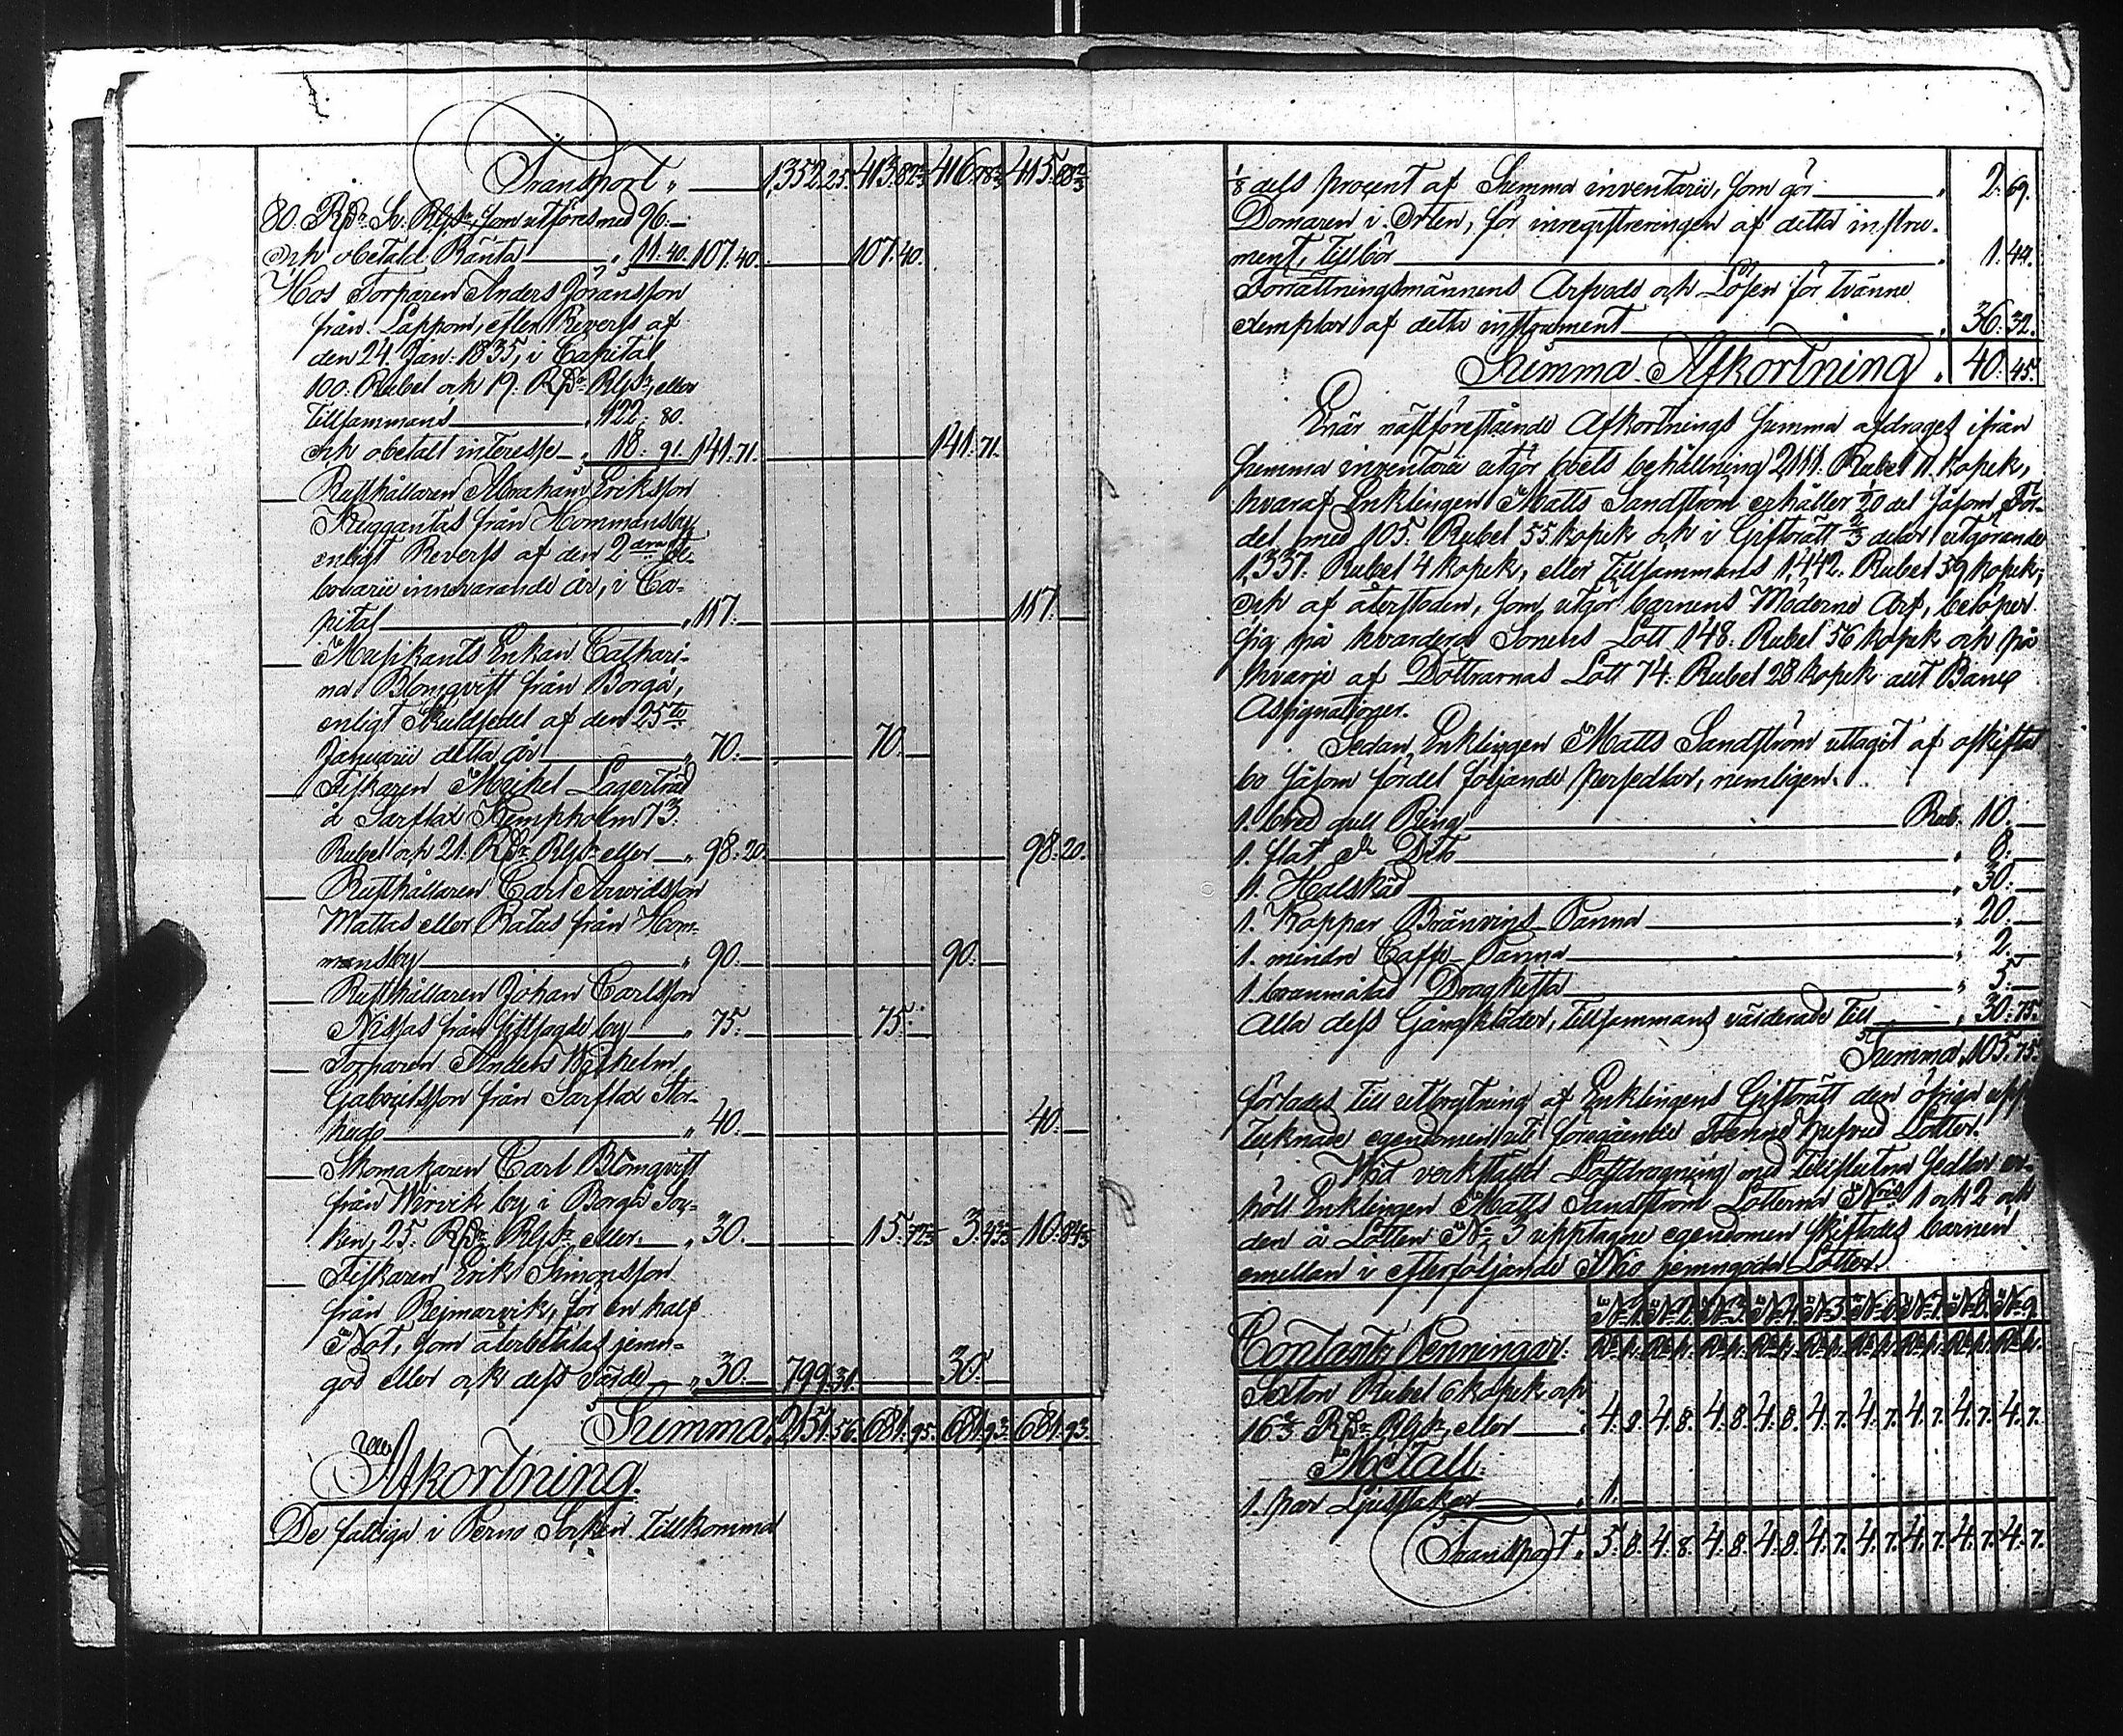 Transport „ 1352. 25. 413. 82 2/3 416. 78 2/3 415. 68 2/3
80. Rdr Sv: Rgs, som utföres med 96.–
och obetald Ränta „ 11. 40. 107. 40. 107. 40.
Hos Torparen Anders Göransson
från Lappom, efter Revers af
den 24. Jan: 1835, i Capital
100. Rubel och 19. Rdr Rgs, eller
tillsammans „ 122. 80.
och obetalt interesse „ 18. 91. 141. 71. 141. 71.
— Rusthållaren Abraham Eriksson
Kuggantas från Hommansby
enligt Revers af den 2dra Fe-
bruarii innevarande år, i Ca-
pital „ 117. 117.
— Musikants Enkan Cathari-
na Blomqvist från Borgå,
enligt Skuldsedel af den 25te
Januarii detta år „ 70. 70.
— Fiskaren Mickel Lagerträd
å Sarflax Kempholm 73.
Rubel och 21. Rdr Rgs eller „ 98. 20. 98. 20.
— Rusthållaren Carl Arvidsson
Mattas eller Ratus från Hom-
mansby „ 90. 90.
— Rusthållaren Johan Carlsson
Nissas från Gistfogde by „ 75. 75.
— Torparen Anders Wilhelm
Gabrielsson från Sarflax Stor-
hede „ 40. 40.
— Skomakaren Carl Blomqvist
från Wirvik by i Borgå Soc-
ken, 25. Rdr Rgs eller „ 30. 15. 72 2/3 3. 43 10. 84
— Fiskaren Erik Simonsson
från Rejmarvik, för en half
Not, som återbetalas jemn-
god eller och dess värde „ 30. 799. 31. 30.
Summa „ 2151. 56. 681. 95. 681. 93. 681. 93.
Afkortning.
De fattiga i Perno Socken tillkomma
1/8 dels procent af Summa inventarii, som gör „ 2. 69.
Domaren i Orten, för inregistreringen af detta instru-
ment, tillbör „ 1. 44.
Förrättningsmännens Arfvode och Lösen för tvänne
exemplar af detta instrument „ 36. 32.
Summa Afkortning „ 40. 45.
Enär nästförestående Afkortnings summa afdrages ifrån
summa inventarii utgör boets behållning 2111. Rubel 11. kopek,
hvaraf Enklingen Matts Sandström erhåller 1/20 del såsom För-
del med 105. Rubel 55. kopek och i Giftorätt 2/3 delar utgörande
1,337. Rubel 4 kopek, eller tillsammans 1,442. Rubel 59 kopek;
och af återstoden, som utgör barnens Möderne Arf, belöper
sig på hvardera Sonens Lott 148. Rubel 56 kopek och på
hvarje af Döttrarnas Lott 74. Rubel 28 kopek allt Banco
Assignationer.
Sedan Enklingen Matts Sandström uttagit af oskiftat
bo såsom fördel följande persedlar, nemligen.
1. bred gull Ring Rub. 10.
1. slät dr Dito „ 8.
1. Halskäd „ 30.
1. koppar Bränvins Panna „ 20.
1. mindre Caffe Panna „ 2.
1. brunmålad Dragkista „ 5.
Alla dess Gångkläder, tillsammans värderade till „ 30. 75.
Summa 105. 75.
fördes till utbrytning af Enklingens Giftorätt den öfriga upp-
tecknade egendomen uti föregående Trenne Lotter.
Wid verkstäld Lottdragning med tillslutna sedlar er-
höll Enklingen Matts Sandström Lotterna Nris 1 och 2 och
den å Lotten No 3 upptagne egendomen skiftades barnen
emellan i efterföljande Nio jemngoda Lotter.
No 1. No 2. No 3. No 4. No 5. No 6. No 7. No 8. No 9.
Contante Penningar. R. k. R. k. R. k. R. k. R. k. R. k. R. k. R. k. R. k.
Sexton Rubel 6 kopek och
16 2/3 Rdr Rgs, eller „ 4. 8. 4. 8. 4. 8. 4. 8. 4. 7. 4. 7. 4. 7. 4. 7. 4. 7.
Metall.
1. par Ljusstakar „ 1.
Transport „ 5. 8. 4. 8. 4. 8. 4. 8. 4. 7. 4. 7. 4. 7. 4. 7. 4. 7.